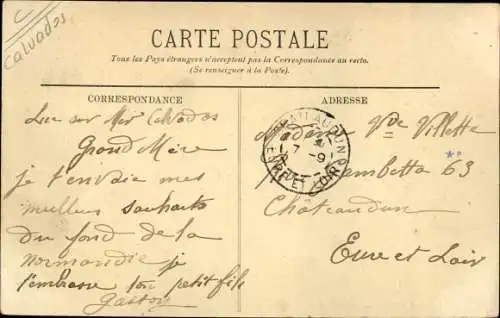 Calvados
CARTE POSTALE
Tous les Pays étrangers n'acceptent pas la Correspondance au recto.
(Se renseigner à la Poste).
CORRESPONDANCE
Luc sur Mer Calvados
Grand Mère
je t'envoie mes
meilleurs souhaits
du fond de la
normandie je
t'embrasse ton petit fils
Gaston
ADRESSE
CHATEAUDUN
7 - 9
EURE-ET-LOIR
Madame Vde Villette
Gambetta 63
Chateaudun
Eure et Loir